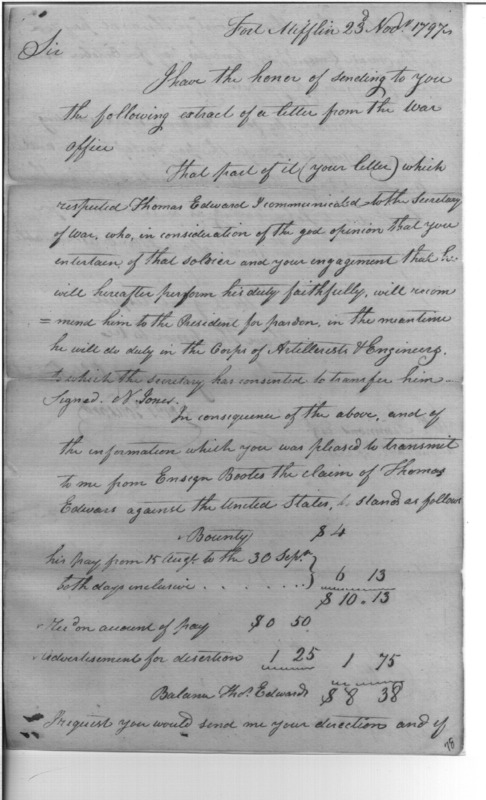 Fort Mifflin 23d Novr. 1797
Sir
I have the honor of sending to you
the following extract of a letter from the War
office
That part of it (your letter) which
respected Thomas Edward I communicated to the Secretary
of War, who, in consideration of the god opinion that you
entertain of that soldier and your engagement that he
will hereafter perform his duty faithfully, will recom
= mend him to the President for pardon, in the meantime
he will do duty in the Corps of Artillerists & Engineers.
to which the secretary has consented to transfer him –
Signed. N. Jones.
In consequence of the above, and of
the information which you was pleased to transmit
to me from Ensign Bootes the claim of Thomas
Edwars against the United States, stands as follows
Bounty $4
his pay from 15 Augt. to the 30 Sept. }
both days inclusive . . . . . . . . } 6 13
$10.13
Recd on account of pay $0 50
Advertisement for desertion 1 25 1 75
Balance Thos. Edwards $8 38
I request you would send me your direction and if
78